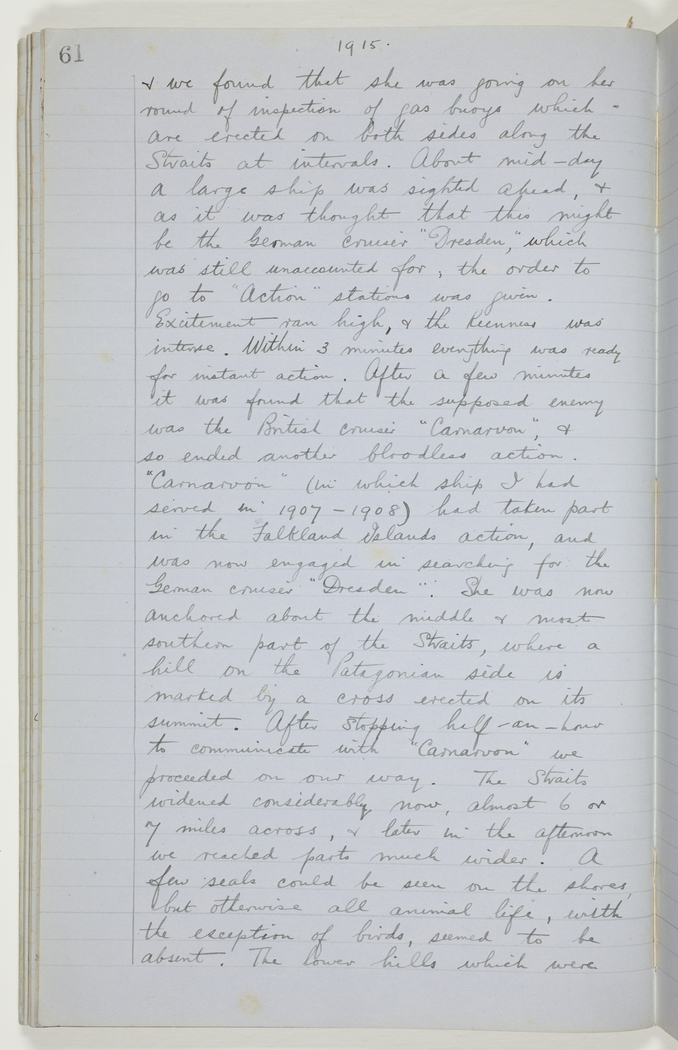 61
1915.
& we found that she was going on her
round of inspection of gas buoys which -
are erected on both sides along the
Straits at intervals. About mid-day
a large ship was sighted ahead, &
as it was thought that this might
be the German cruiser "Dresden," which
was still unaccounted for, the order to
go to "Action" stations was given.
Excitement ran high, & the keenness was
intense. Within 3 minutes everything was ready
for instant action. After a few minutes
it was found that the supposed enemy
was the British cruiser "Carnarvon", &
so ended another bloodless action.
"Carnarvon" (in which ship I had
served in 1907-1908) had taken part
in the Falkland Islands action, and
was now engaged in searching for the
German cruiser "Dresden". She was now
anchored about the middle & most
southern part of the Straits, where a
hill on the Patagonian side is
marked by a cross erected on its
summit. After stopping half-an-hour
to communicate with "Carnarvon" we
proceeded on our way. The Straits
widened considerably now, almost 6 or
7 miles across, & later in the afternoon
we reached parts much wider. A
few seals could be seen on the shores,
but otherwise all animal life, with
the exception of birds, seemed to be
absent. The lower hills which were